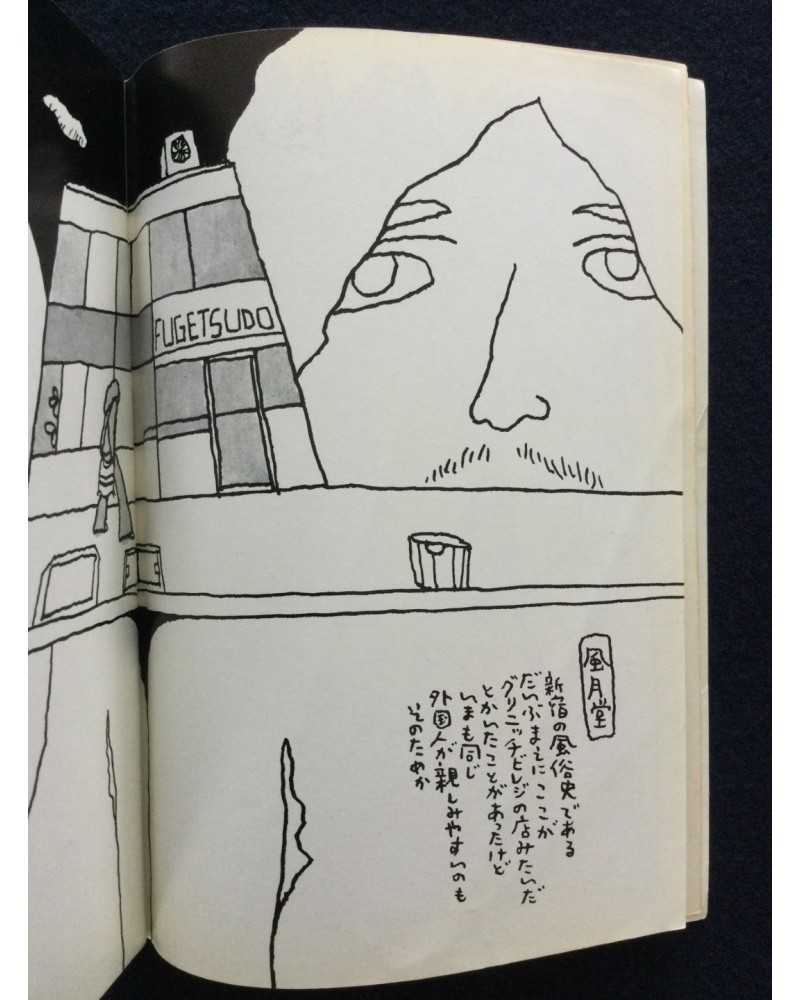 FUGETSUDO
風月堂
新宿の風俗史である
だいぶまえにここが
グリニッチビレジの店みたいだ
とかいたことがあったけど
いまも同じ
外国人が親しみやすいのも
そのためか